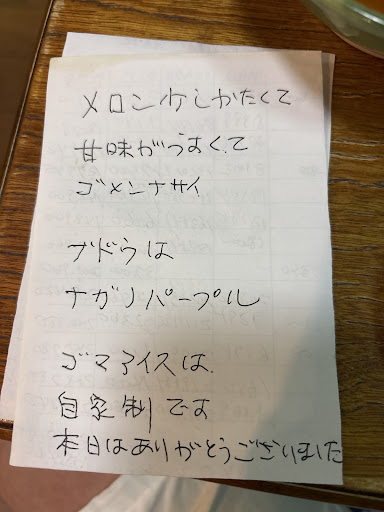 メロン少しかたくて
甘味がうすくて
ゴメンナサイ
ブドウは
ナガノパープル
ゴマアイスは
自家制です
本日はありがとうございました